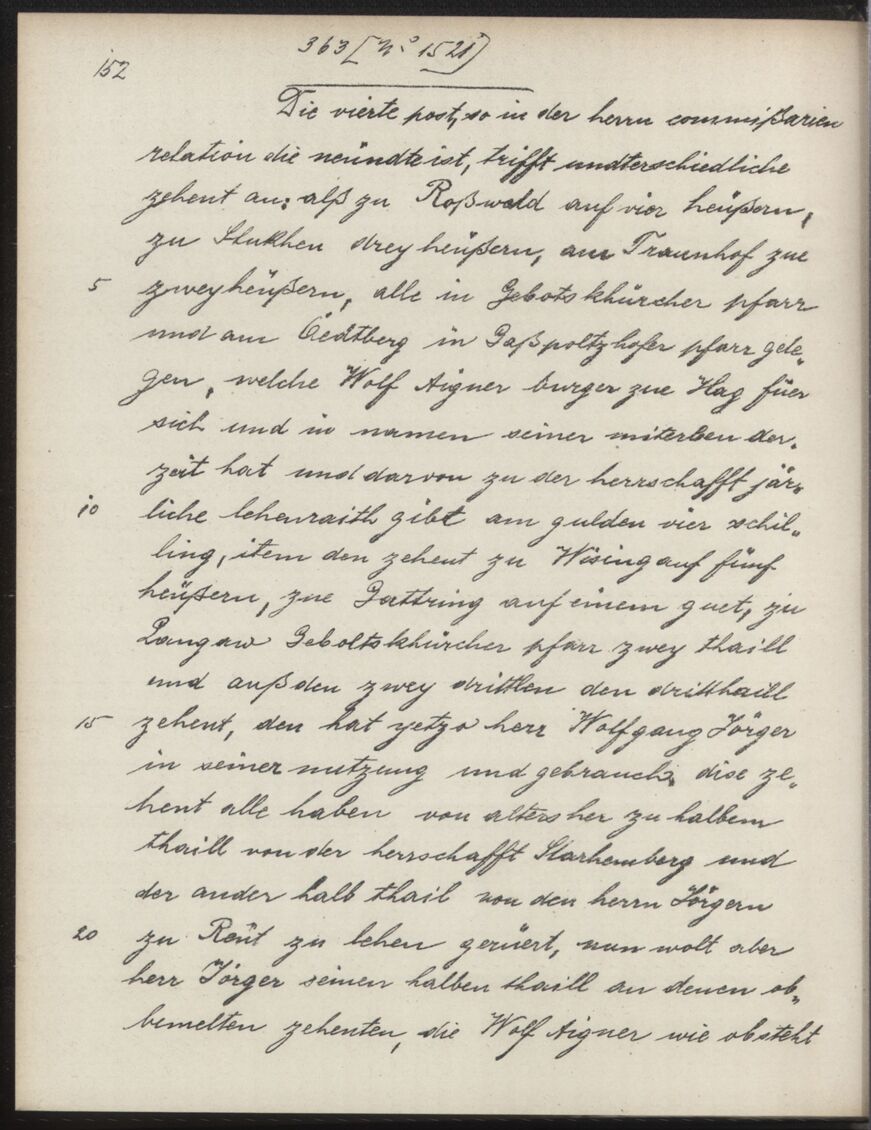 363 [N° 1521]
152
Die vierte post, so in der herrn commißarien
relation die neündte ist, trifft undterschiedliche
zehent an: alß zu Roßwald auf vier heüßern,
zu Stukhen drey heüßern, am Traunhof zue
5 zwey heüßern, alle in Gebotskhürcher pfarr
und am Öedtberg in Gaßpoltzhofer pfarr gele„
gen, welche Wolf Aigner burger zue Hag füer
sich und in namen seiner miterben der„
zeit hat und darvon zu der herrschafft jär„
10 liche lehenraith gibt am gulden vier schil„
ling, item den zehent zu Wising auf fünf
heüßern, zue Gattring auf einem guet, zu
Langaw Geboltskhürcher pfarr zwey thaill
und auß den zwey drittlen den dritthaill
15 zehent, den hat yetzo herr Wolfgang Jörger
in seiner nutzung und gebrauch, dise ze„
hent alle haben von alters her zu halbem
thaill von der herrschafft Starhemberg und
der ander halb thail von den herrn Jörgern
20 zu Reüt zu lehen gerüert, nun wolt aber
herr Jörger seinen halben thaill an denen ob„
bemelten zehenten, die Wolf Aigner wie obsteht